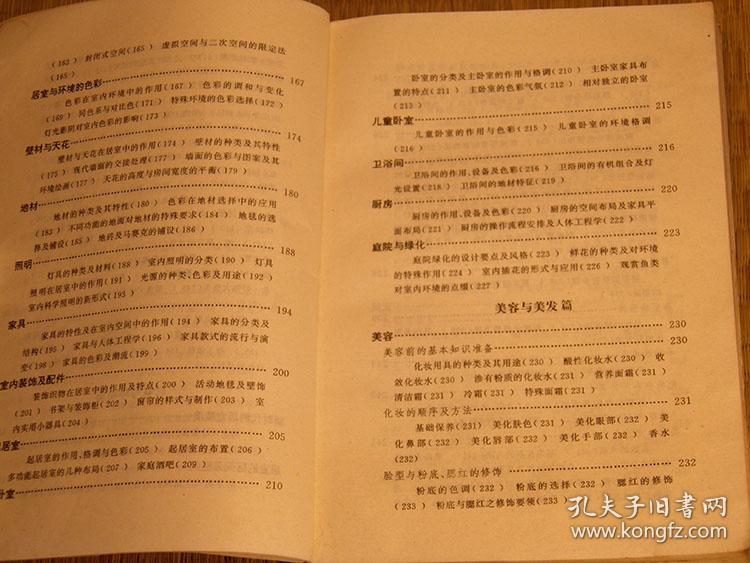 (163) 封闭式空间(165) 虚拟空间与二次空间的限定法
(165)
居室与环境的色彩 167
色彩在室内环境中的作用(167) 色彩的调和与变化
(169) 同色系与对比色(171) 特殊环境的色彩选择(172)
灯光影阴对室内色彩的影响(173)
壁材与天花 174
壁材与天花在居室中的作用(174) 壁材的种类及其特性
(175) 现代墙面的交接处理(177) 墙面的色彩与图案及其
环境绘画(177) 天花的高度与房间宽度的平衡(179)
地材 180
地材的种类及其特性(180) 色彩在地材选择中的应用
(183) 不同功能的地面对地材的特殊要求(184) 地毯的选
择及铺设(185) 地砖及马赛克的铺设(186)
照明 188
灯具的种类及材料(188) 室内照明的分类(190) 灯具
照明在居室中的作用(191) 光源的种类、色彩及用途(192)
室内科学照明的新形式(193)
家具 194
家具的特性及在室内空间中的作用(194) 家具的分类及
结构(195) 家具与人体工程学(196) 家具款式的流行与演
变(198) 家具的色彩及潮流(199)
室内装饰及配件 200
装饰织物在居室中的作用及特点(200) 活动地毯及壁饰
(201) 书架与装饰柜(202) 窗帘的样式与制作(203) 室
内实用小器具(204)
起居室 205
起居室的作用、格调与色彩(205) 起居室的布置(206)
多功能起居室的几种布局(207) 家庭酒吧(209)
卧室 210
卧室的分类及主卧室的作用与格调(210) 主卧室家具布
置的特点(211) 主卧室的色彩气氛(212) 相对独立的卧室
(213)
儿童卧室 215
儿童卧室的作用与色彩(215) 儿童卧室的环境格调
(216)
卫浴间 216
卫浴间的作用、设备及色彩(216) 卫浴间的有机组合及灯
光设置(218) 卫浴间的地材特征(219)
厨房 220
厨房的作用、设备及色彩(220) 厨房的空间布局及家具平
面布局(221) 厨房的操作流程安排及人体工程学(222)
庭院与绿化 223
庭院绿化的设计要点及风格(223) 鲜花的种类及对环境
的特殊作用(224) 室内插花的形式与应用(226) 观赏鱼类
对室内环境的点缀(227)
美容与美发篇
美容 230
美容前的基本知识准备 230
化妆用具的种类及其用途(230) 酸性化妆水(230) 收
敛化妆水(230) 渗有粉质的化妆水(230) 营养面霜(231)
清洁霜(231) 冷霜(231) 特殊面霜(231)
化妆的顺序及方法 231
基础保养(231) 美化肤色(231) 美化眼部(232) 美
化鼻部(232) 美化唇部(232) 美化手部(232) 香水
(232)
脸型与粉底、腮红的修饰 232
粉底的色调(232) 粉底的选择(232) 腮红的修饰
(233) 粉底与腮红之修饰要领(233)
孔夫子旧书网
www.kongfz.com